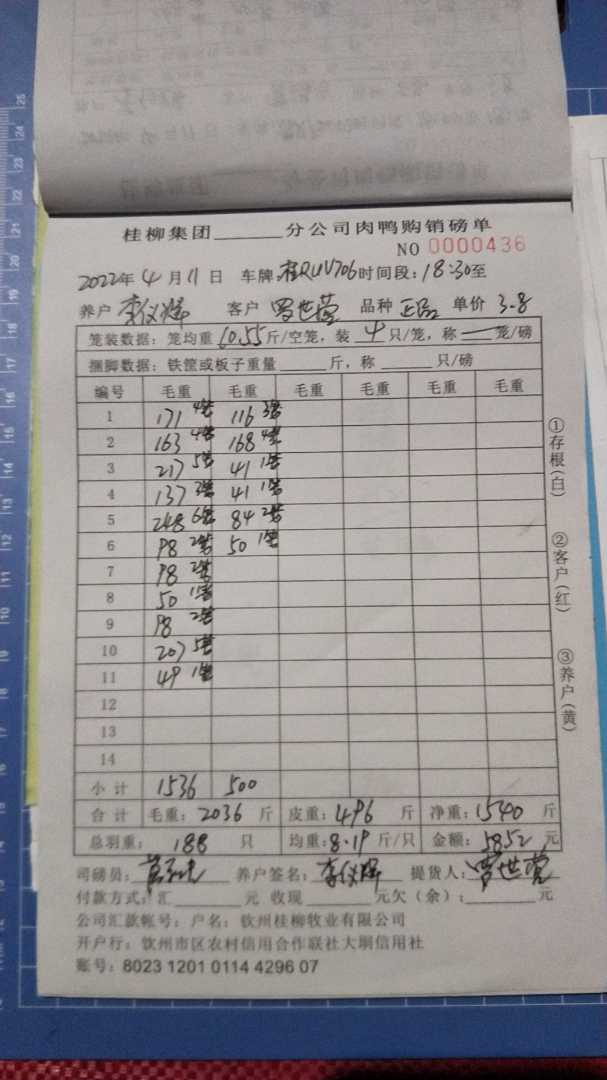 桂柳集团______分公司肉鸭购销磅单
NO 0000436
2022年 4 月 11 日 车牌:桂RUV706 时间段:18:30至
养户 李仪辉 客户 罗世营 品种 正品 单价 3.8
笼装数据:笼均重 10.55 斤/空笼,装 4 只/笼,称 — 笼/磅
捆脚数据:铁筐或板子重量______斤,称______只/磅
编号 毛重 毛重 毛重 毛重 毛重
1 171 4笼 116 3笼
2 163 4笼 168 4笼
3 217 5笼 41 1笼
4 137 3笼 41 1笼
5 248 6笼 84 2笼
6 98 2笼 50 1笼
7 98 2笼
8 50 1笼
9 98 2笼
10 207 5笼
11 49 1笼
12
13
14
小计 1536 500
合计 毛重:2036 斤 皮重:496 斤 净重:1540 斤
总羽重: 188 只 均重:8.19 斤/只 金额:5852 元
司磅员: 养户签名:李仪辉 提货人:罗世营
付款方式:汇______元 收现______元欠(余):______元
公司汇款帐号:户名:钦州桂柳牧业有限公司
开户行:钦州市区农村信用合作联社大垌信用社
账号:8023 1201 0114 4296 07
①存根(白)
②客户(红)
③养户(黄)